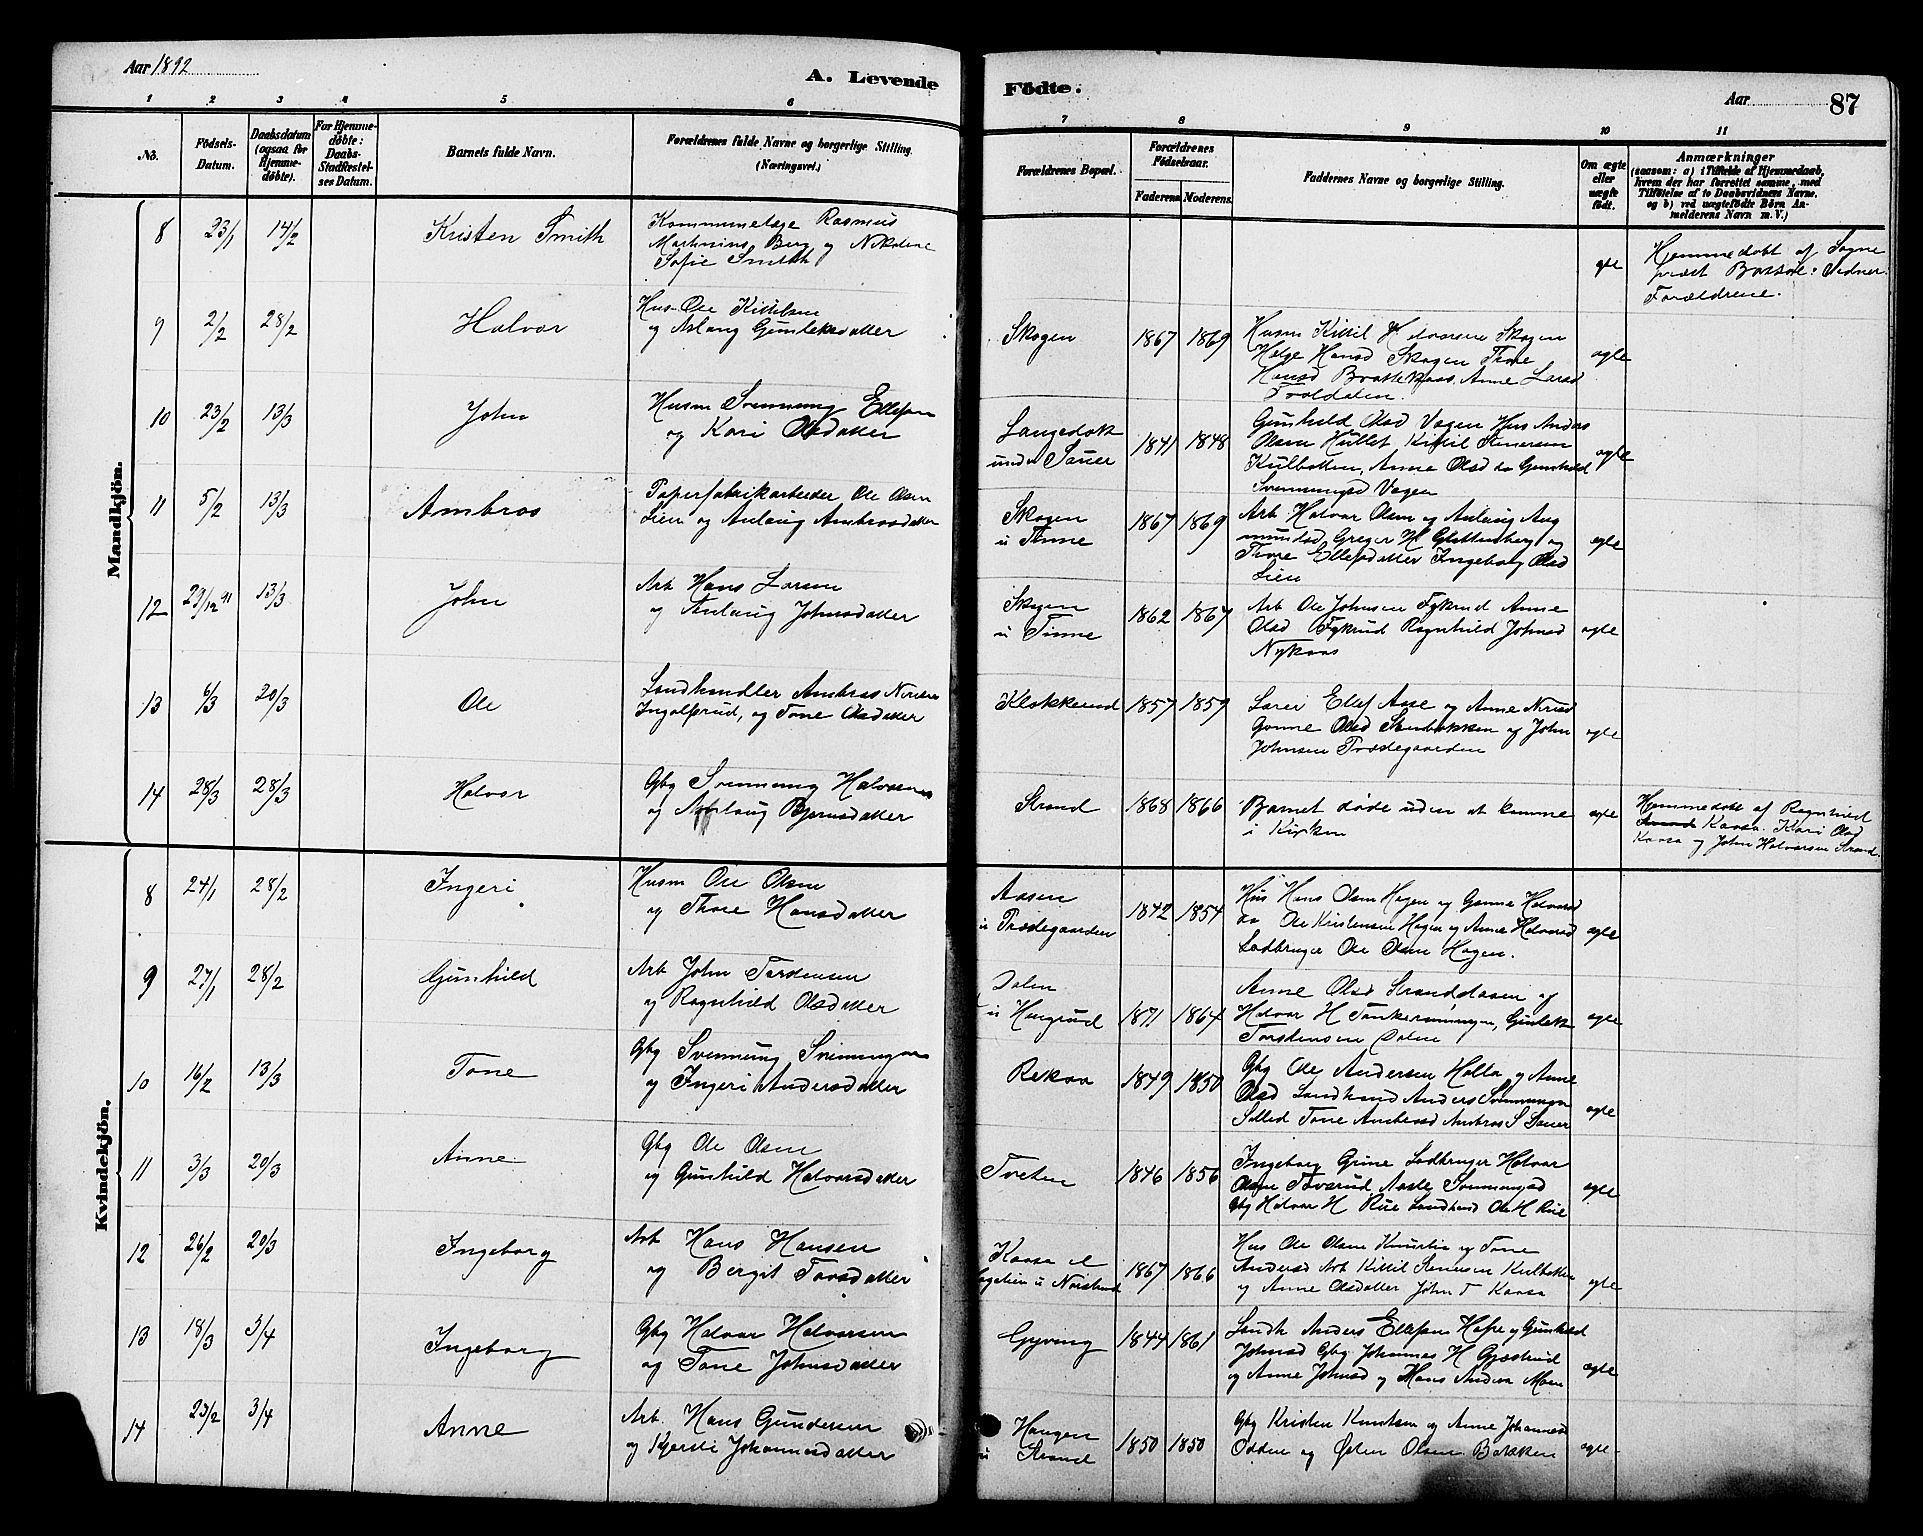 Aar 1892
A. Levende
Födte.
Aar
87
1 2 3 4 5 6 7 8 9 10 11
No.
Födsels-
Datum.
Daabsdatum
(ogsaa for
Hjemme-
døbte).
For Hjemme-
døbte:
Daabs-
Stadfæstel-
ses Datum.
Barnets fulde Navn.
Forældrenes fulde Navne og borgerlige Stilling.
(Næringsvei.)
Forældrenes Bopæl.
Forældrenes
Födselsaar.
Faderens Moderens
Faddernes Navne og borgerlige Stilling.
Om ægte
eller
uægte
født.
Anmærkninger
(saasom: a) i Tilfælde af Hjemmedaab,
hvem der har forrettet samme, med
Tilføielse af to Daabsvidners Navne.
og b) ved uægtefödte Börn An-
melderens Navn m.V.)
Mandkjön.
8 23/1 14/2 Kristen Smith
Rasmus
Martinius Berg og Nikoline
Sofie Smith
Hjemmedøbt af Sogne
præst
Forældrene.
9 2/2 28/2 Halvor
Hus. Ole Kittilsen
og Aslaug Gunleksdatter
Skogen 1867 1869
Husm Kittil Halvorsen Skogen
Helge Hansd Skogen Tone
Hansd Anne Larsd
ægte
10 23/2 13/3 John
Husm Svennung Ellefsen
og Kari Olsdatter
under Sauer 1841 1848
Gunhild Olsd Vogen Hus Anders
Olsen Hullet Kittil Stenersen
Kulbotten, Anne Olsd Gunhild
Svennungsd Vogen
ægte
11 5/2 13/3 Ambros
Papirfabrikarbeider Ole Olsen
Lien og Anlaug Ambrosdatter
Skogen
u Tinne 1867 1869
Arb Halvor Olsen og Anlaug Aug
mundsd Greger H
Tone Ellefsdatter Ingeborg Olsd
Lien
ægte
12 29/12 91 13/3 John
Arb Hans Larsen
og Anlaug Johnsdatter
Skogen
u Tinne 1862 1867
Arb Ole Johnsen Anne
Olsd Ragnhild Johnsd
Nykaas
ægte
13 6/3 20/3 Ole
Landhandler Ambros
Ingolfsrud, og Tone Olsdatter
Klokkerud 1857 1859
Lærer Ellef Aase og Anne
Gonne Olsd Stenbakken og John
Johnsen Trædegaarden
ægte
14 28/3 28/3 Halvor
Gbg Svennung Halvorsen
og Anlaug Bjørnsdatter
Strand 1868 1866
Barnet døde uden at komme
i Kirken
ægte
Hjemmedøbt af Ragnhild
Kaasa. Kari Olsd
Kaasa og John Halvorsen Strand.
Kvindekjön.
8 24/1 28/2 Ingeri
Husm Ole Olsen
og Thore Hansdatter
Aasen
u Trædegaarden 1842 1854
Hus Hans Olsen Hagen og Gonne Halvorsd
Ole Kristensen Hagen og Anne Halvorsd
Ladbruger Ole Olsen Hagen.
ægte
9 27/1 28/2 Gunhild
Arb John Torstensen
og Ragnhild Olsdatter
Dalen
u Haugrud 1871 1864
Anne Olsd Stranddaasen og
Halvor H
Torstensen Dalen
ægte
10 16/2 13/3 Tone
Gbg Svennung Svennungsen
og Ingeri Andersdatter
Rekaa 1849 1850
Gbg Ole Andersen Holla og Anne
Olsd Landhand Anders Svennungsen
Tone Ambrosd Ambros S Sauer
ægte
11 3/3 20/3 Anne
Gbg Ole Olsen
og Gunhild Halvorsdatter
Tveten 1846 1856
Ingeborg Grine Ladbruger Halvor
Olsen Aasle Svennungsd
Gbg Halvor H Rue Landhand Ole H Rue
ægte
12 26/2 20/3 Ingeborg
Arb Hans Hansen
og Bergit Torsdatter
Kaasa 1867 1866
Hus Ole Olsen og Tone
Andersd Arb Kittil Stenersen
og Anne Olsdatter John T Kaasa
ægte
13 18/3 3/4 Ingeborg
Gbg Halvor Halvorsen
og Tone Johnsdatter
Gyving 1844 1861
Landh Anders Ellefsen og Gunhild
Johnsd Gbg Johannes H
og Anne Johnsd og Hans Moen
ægte
14 23/2 3/4 Anne
Arb. Hans Gundersen
og Kjersti Johannesdatter
Haugen
u Strand 1850 1850
Gbg Kristen Knutsen og Anne Johannesd
Odden og Østen Olsen Bakken
ægte